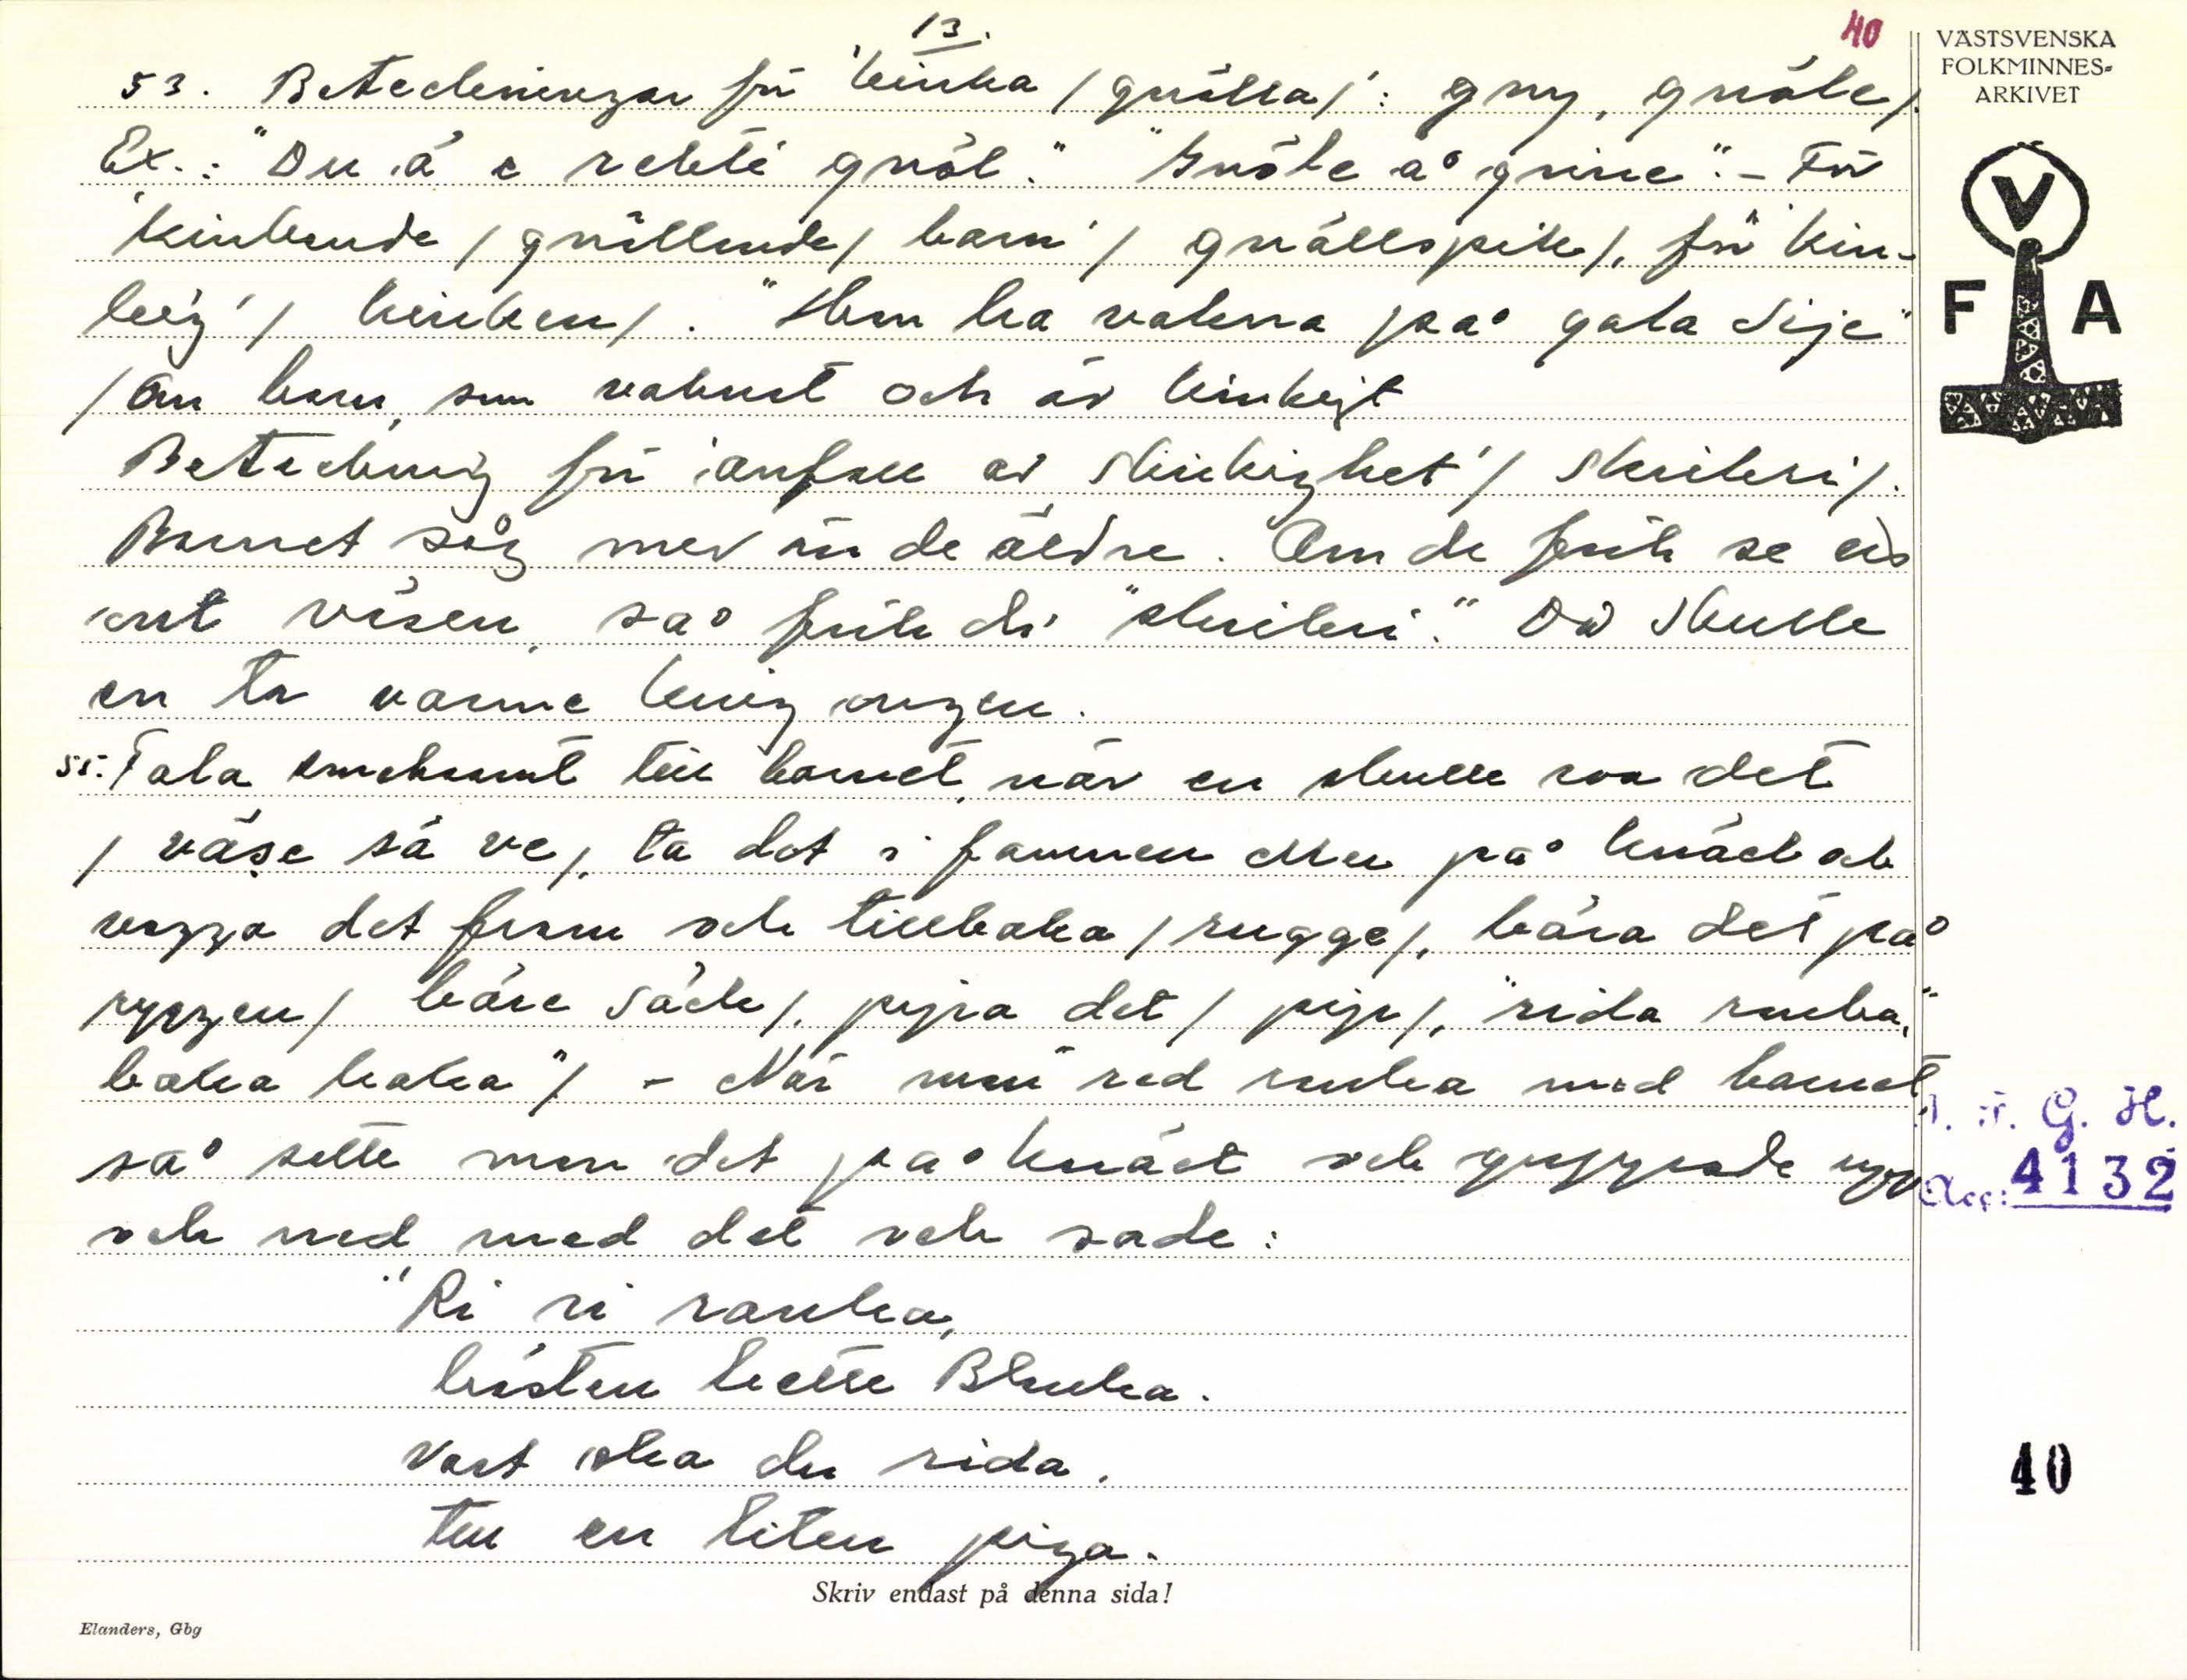 13.
40
VÄSTSVENSKA
FOLKMINNES-
ARKIVET
53. Beteckningar för 'kinka /gnälla/': gny, gnöle/.
Ex.: "Du ä e rekti gnöl." "Gnöle å grine". - För
'kinkande /gnällande/ barn' / gnällspik/, för 'kin-
kig' / kinken/. "Hon ha vakna på gala sije"
/om barn, som vaknat och är kinkigt
Beteckning för 'anfall av skrikighet' / skrikeri/.
Barnet såg mer än de äldre. Om de fick se ett
ont väsen, så fick de "skrikeri." Då skulle
en ta varme kring ongen.
55. Tala smeksamt till barnet, när en skulle roa det
/ väse sä ve/, ta det i famnen eller på knäet och
vagga det fram och tillbaka / rugge/, bära det på
ryggen / bäre säck/, pigra det / pige/, "rida ranka"
baka kaka"/ - När man red ranka med barnet,
så satte man det på knäet och guppade upp
och ned med det och sade:
"Ri ri ranka,
hästen hette Blanka.
Vart ska du rida.
Till en liten piga.
V
F A
I. F. G. H.
Acc: 4132
40
Skriv endast på denna sida!
Elanders, Gbg